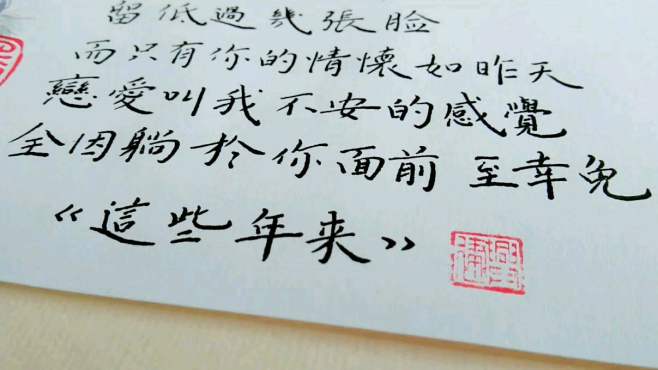 留低過幾張脸
而只有你的情懷如昨天
戀愛叫我不安的感覺
全因躺於你面前 至幸免
《這些年来》